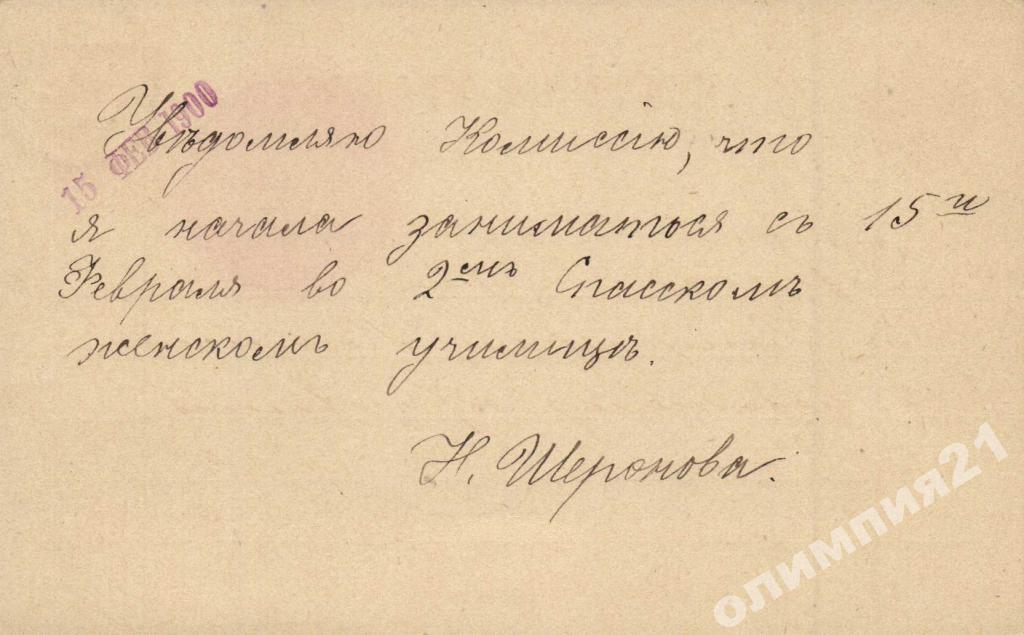 15 ФЕВ 1900
Увѣдомляю Комиссію, что
я начала заниматься съ 15 и
Февраля во 2-омъ Спасскомъ
женскомъ училищѣ.
Н. Шеронова.
олимпия21